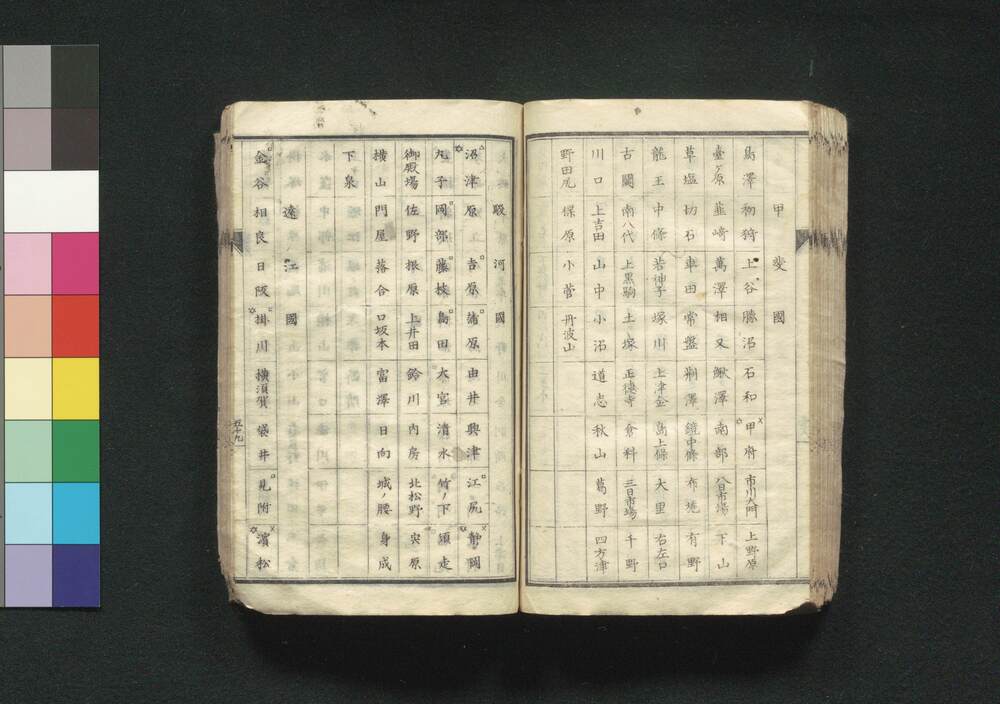 甲斐國
鳥澤 初狩 上谷 勝沼 石和 甲府 市川大門 上野原
臺ヶ原 韮崎 萬澤 相又 鰍澤 南部 八日市場 下山
草塩 切石 車田 常盤 割澤 鏡中條 布施 有野
龍王 中條 若神子 塚川 上津金 島上條 大里 右左口
古關 南八代 上黒駒 土塚 正德寺 倉科 三日市場 千野
川口 上吉田 山中 小沼 道志 秋山 葛野 四方津
野田尻 保原 小菅 丹波山
駿河國
沼津 原 吉原 蒲原 由井 興津 江尻 靜岡
丸子 岡部 藤枝 島田 大宮 清水 竹ノ下 須走
御殿場 佐野 根原 上井田 鈴川 内房 北松野 宍原
横山 門屋 落合 口坂本 富澤 日向 城ノ腰 身成
下泉
遠江國
金谷 相良 日阪 掛川 横須賀 袋井 見附 濱松
五十九